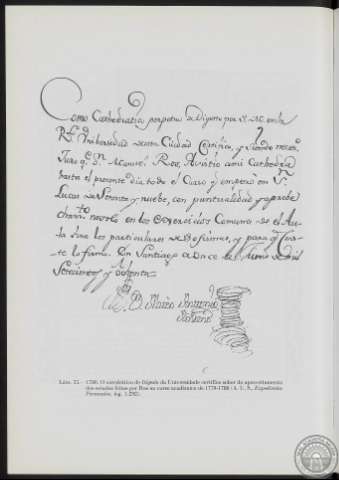 Como Cathedratico perpetuo de Digesto por S. M. en la
Rl. Universidad de esta Ciudad Certifico, y siendo neces.o
Juro q.e Dn. Manuel Ros, Asistio a mi Cathedra
hasta el presente dia todo el Curso q.e empezó en Sn.
Lucas de Setenta y nuebe, con puntualidad y aprobe
cham.to notorio en los Exercicios Comunes de el Au-
la como los particulares de y para q.e Cons-
te lo firmo. En Santiago a Once de Junio de mil
Setecientos y Ochenta
D. Antonio
Lám. 25.— 1780. O catedrático de Dixesto da Universidade certifica sobor do aproveitamento
dos estudos feitos por Ros no curso académico de 1779-1780 (A. U. S., Expedientes
Personales, leg. 1.292).